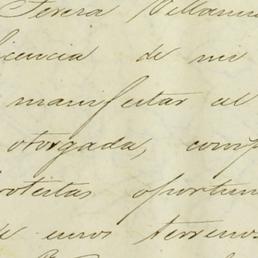 Teresa Villanu
licencia de mi
manifestar al
otorgada, comp
protestas oportun
de cuyos terrenos